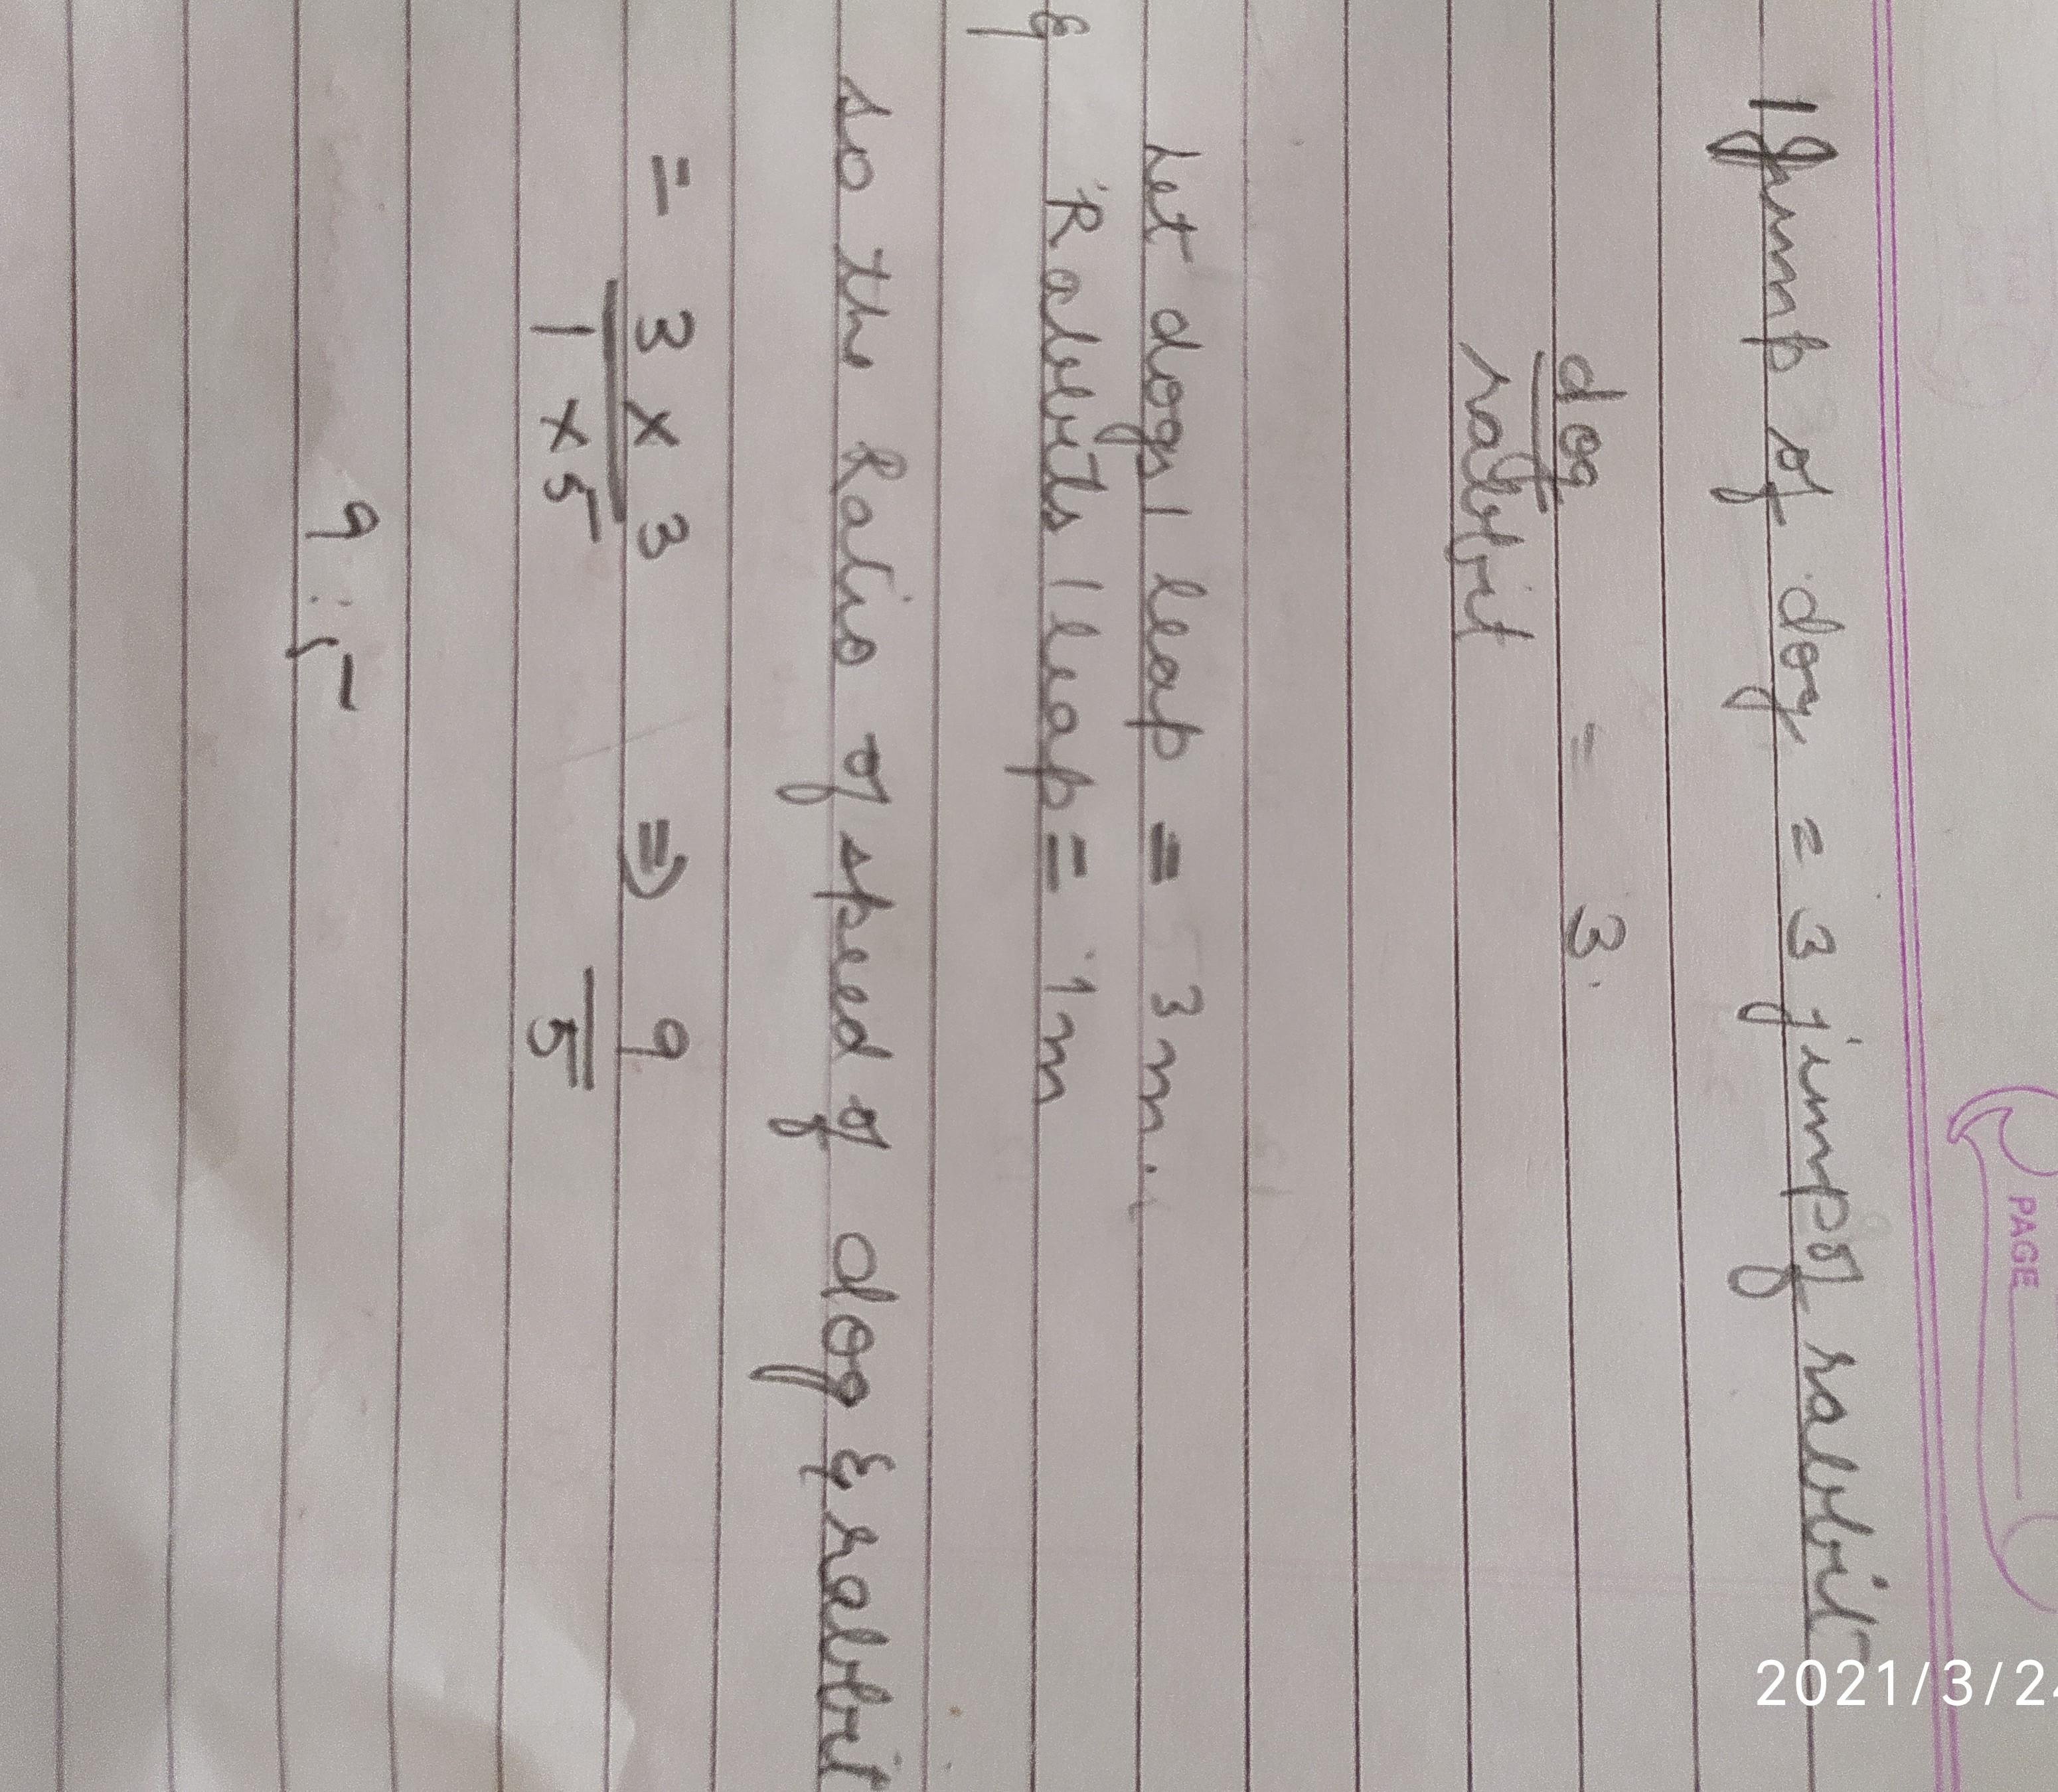 PAGE
1 Jump of dog = 3 jump of rabbit
dog
rabbit
= 3.
Let dogs 1 leap = 3m.
& Rabbits 1 leap = 1m
so the Ratio of speed of dog & rabbit
= 3 × 3
1 × 5
⇒ 9
5
9 : 5
2021/3/24